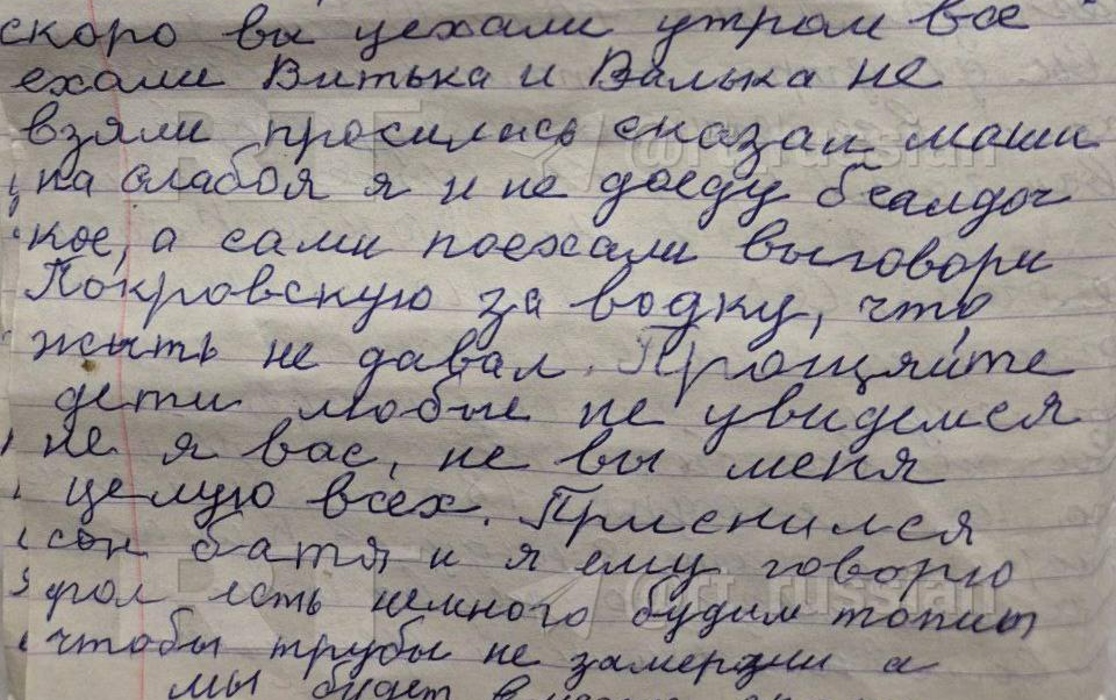 скоро вы уехали утром все
ехали Витька и Валька не
взяли просилась сказал маши
на слабоя я и не доеду
кое, а сами поехали выговори
Покровскую за водку, что
жыть не давал. Прощяйте
дети любые не увидемся
не я вас, не вы меня
целую всех. Приснился
сон батя и я ему говорю
есть немного будим топить
чтобы трубы не замерзли а
мы будет
RT @rt_russian
RT @rt_russian